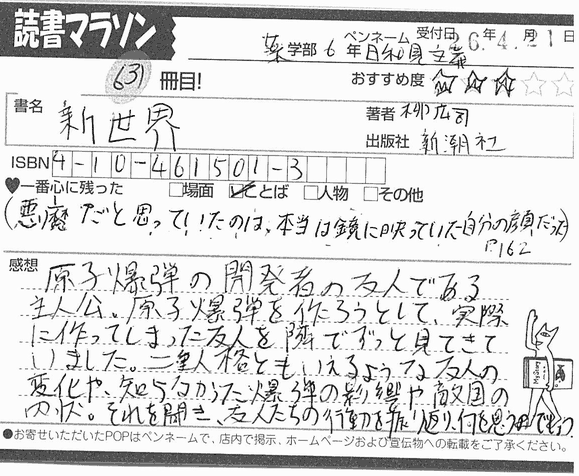 読書マラソン
ペンネーム 受付日 06年4月21日
薬学部6年日和見文庫
631冊目!
おすすめ度 ☆☆☆☆☆
書名 新世界
著者 柳広司
出版社 新潮社
ISBN 4-10-461501-3
♥一番心に残った □場面 ☑ことば □人物 □その他
(悪魔だと思っていたのは、本当は鏡に映っていた自分の顔だった)
P.162
感想
原子爆弾の開発者の友人である
主人公。原子爆弾を作ろうとして、実際
に作ってしまった友人を隣でずっと見てきて
いました。二重人格ともいえるような友人の
変化や、知らなかった爆弾の影響や敵国の
内状。それを聞き、友人たちの行動を振り返り、何を思うのでしょう
●お寄せいただいたPOPはペンネームで、店内で掲示、ホームページおよび宣伝物への転載をご了承ください。